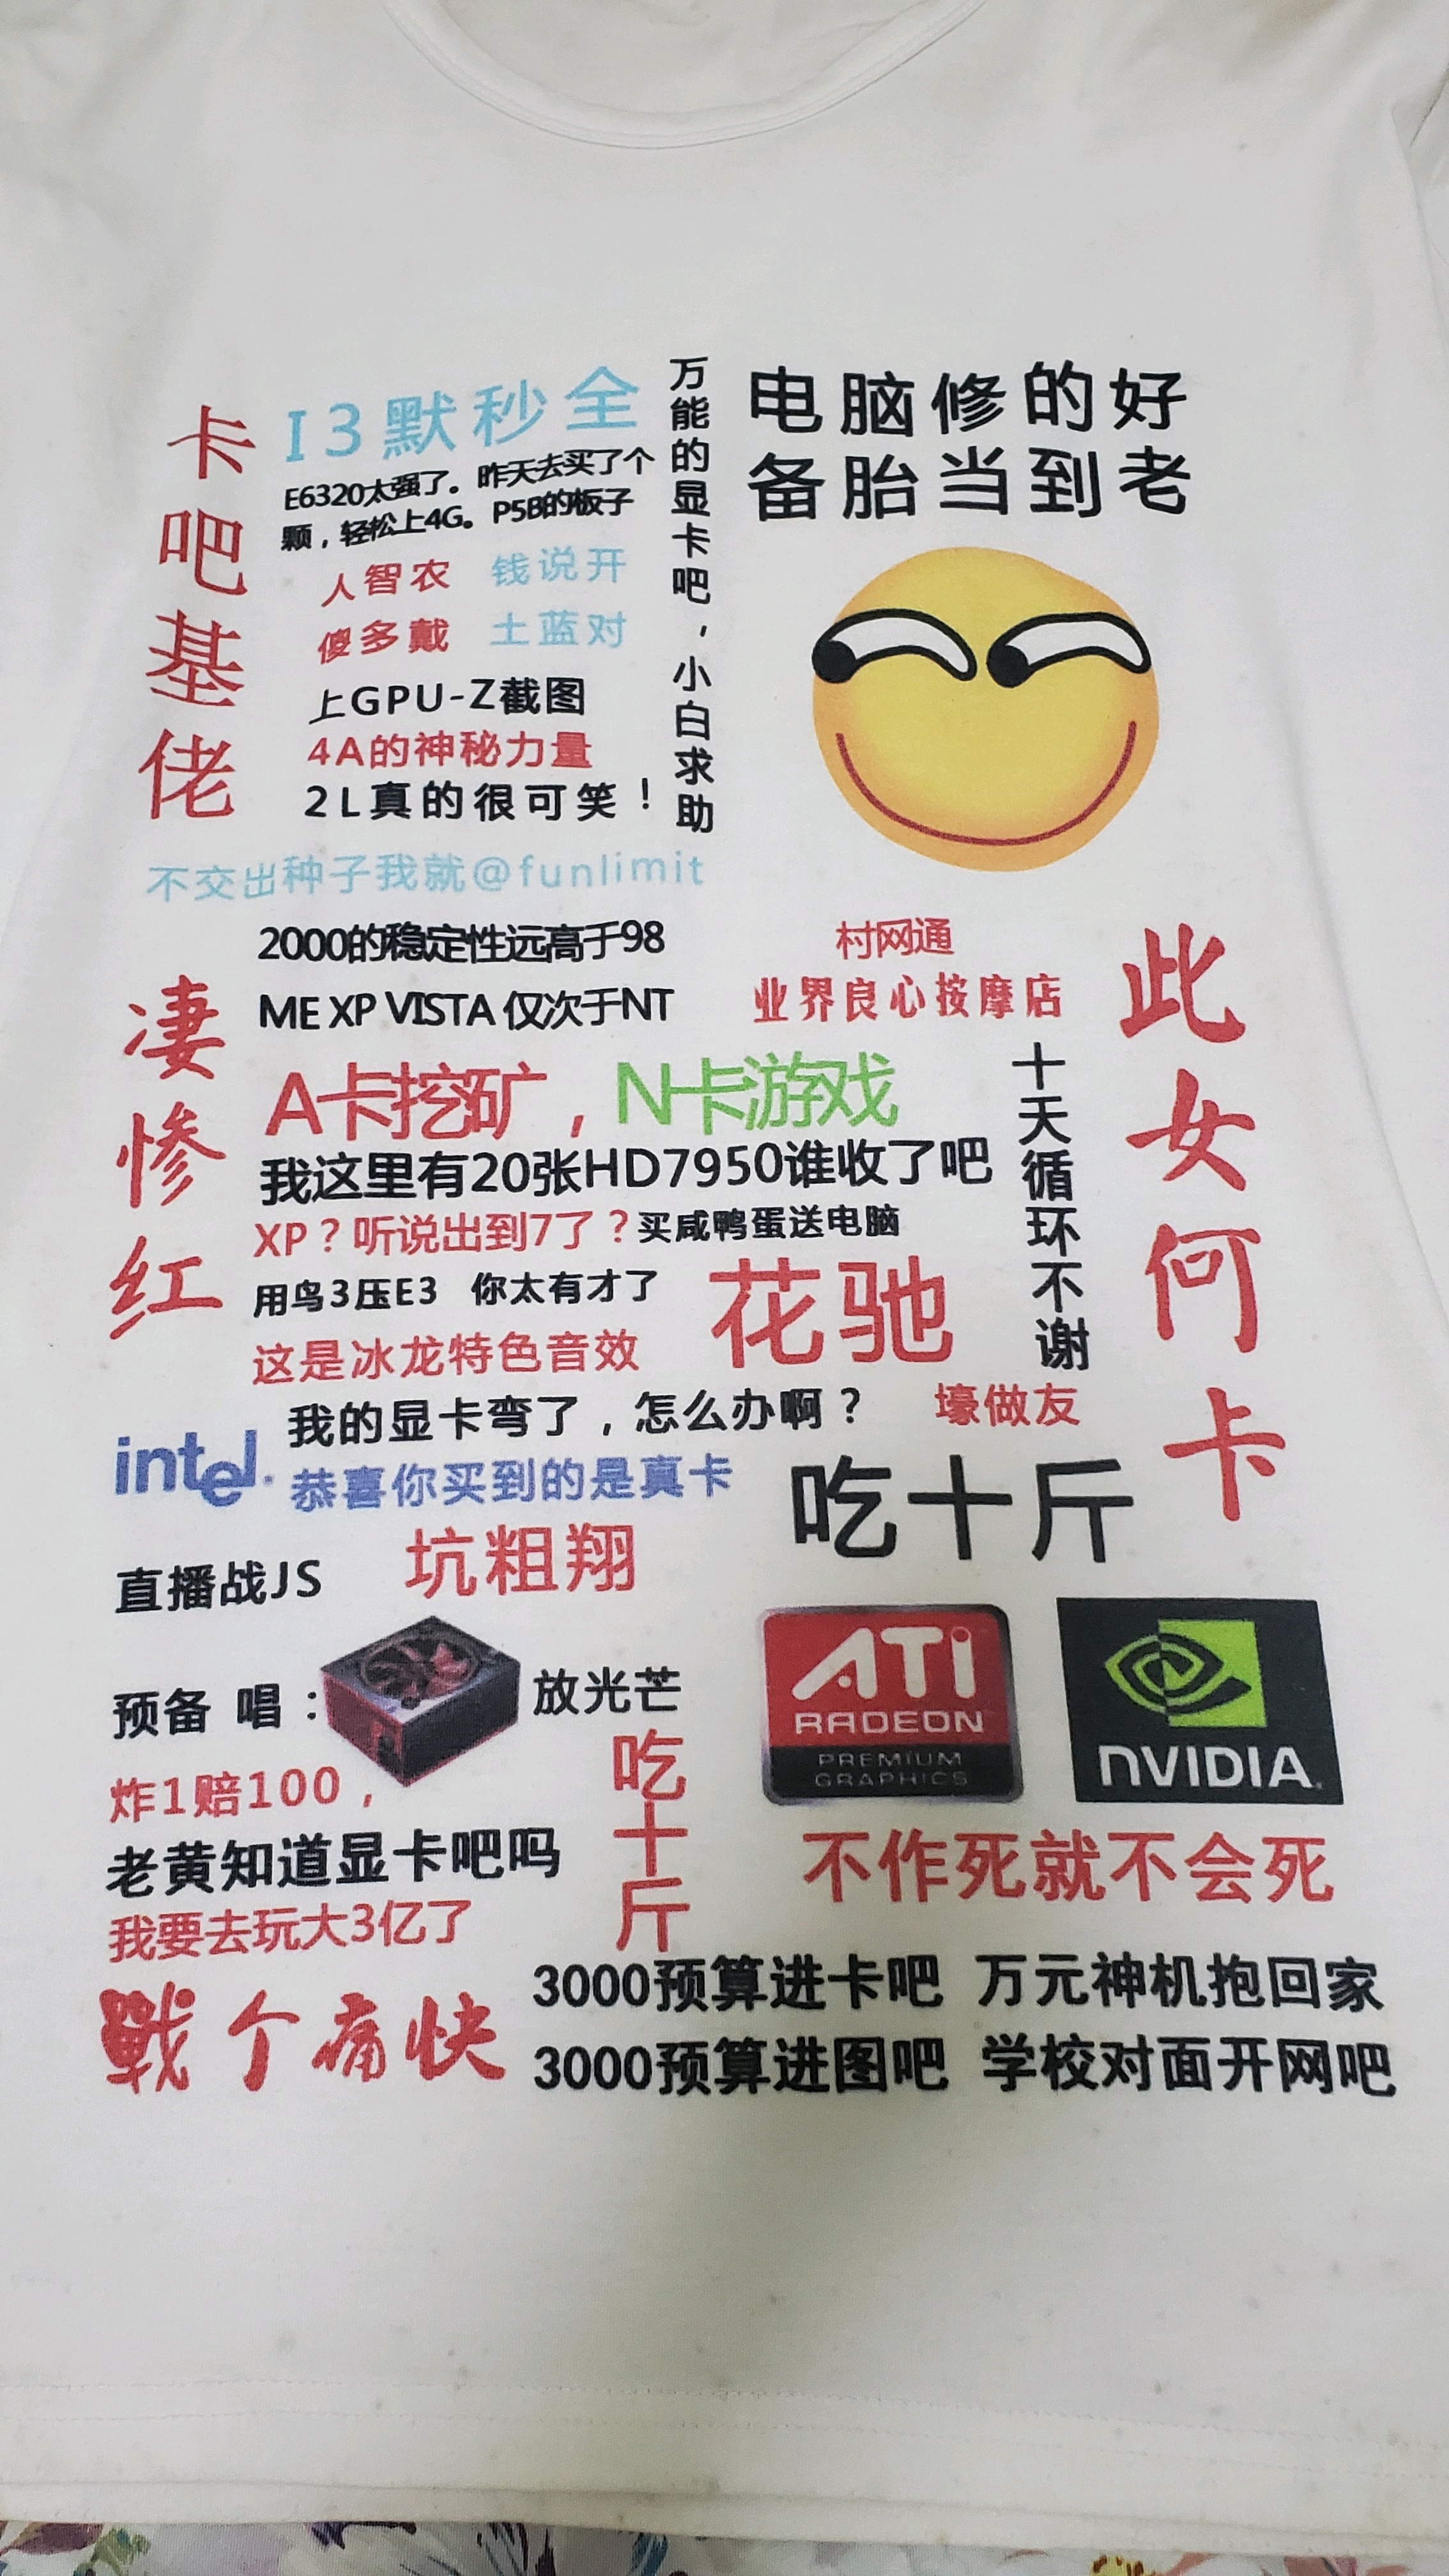 卡吧基佬
I3默秒全
E6320太强了。昨天去买了个
颗，轻松上4G。P5B的板子
人智农 钱说开
傻多戴 土蓝对
上GPU-Z截图
4A的神秘力量
2L真的很可笑！
万能的显卡吧，小白求助
电脑修的好
备胎当到老
不交出种子我就@funlimit
凄惨红
2000的稳定性远高于98
ME XP VISTA 仅次于NT
村网通
业界良心按摩店
此女何卡
A卡挖矿，N卡游戏
我这里有20张HD7950谁收了吧
十天循环不谢
XP？听说出到7了？买咸鸭蛋送电脑
用鸟3压E3 你太有才了
花驰
这是冰龙特色音效
我的显卡弯了，怎么办啊？
壕做友
intel.
恭喜你买到的是真卡
吃十斤
直播战JS
坑粗翔
预备 唱：
放光芒
ATI
RADEON
PREMIUM
GRAPHICS
NVIDIA.
炸1赔100，
吃十斤
老黄知道显卡吧吗
不作死就不会死
我要去玩大3亿了
戰个痛快
3000预算进卡吧 万元神机抱回家
3000预算进图吧 学校对面开网吧